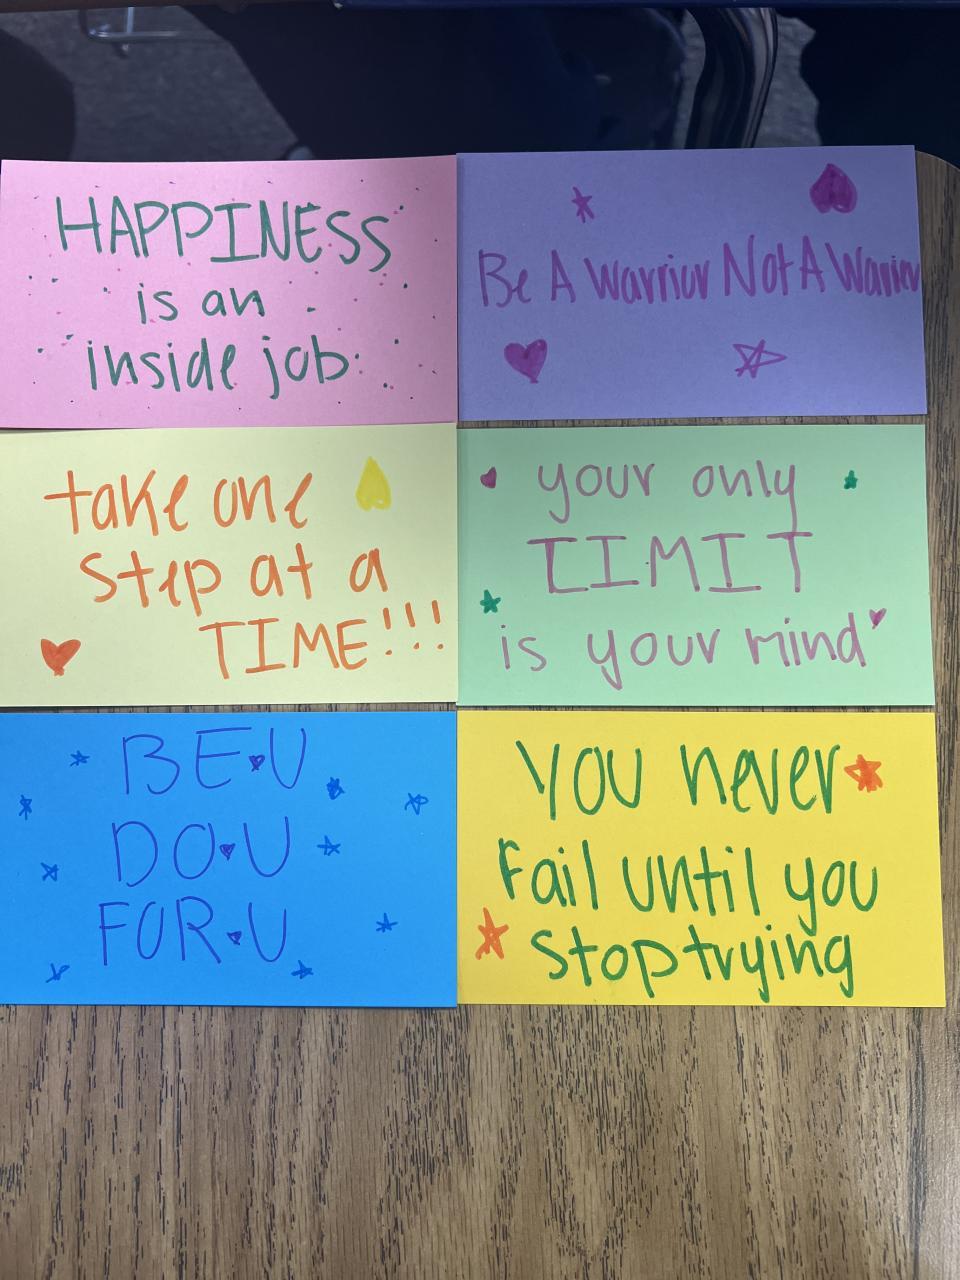 HAPPINESS
is an
inside job
Be A Warrior Not A Warrier
take one
step at a
TIME!!!
your only
LIMIT
is your mind
BE U
DO U
FOR U
You never
Fail until you
stop trying